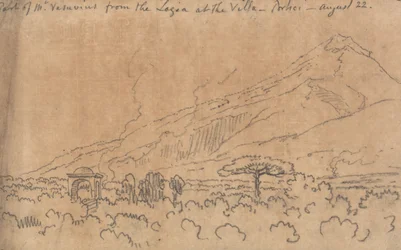 Part of Mt. Vesuvius from the Logea at the Villa - Portici - August 22.